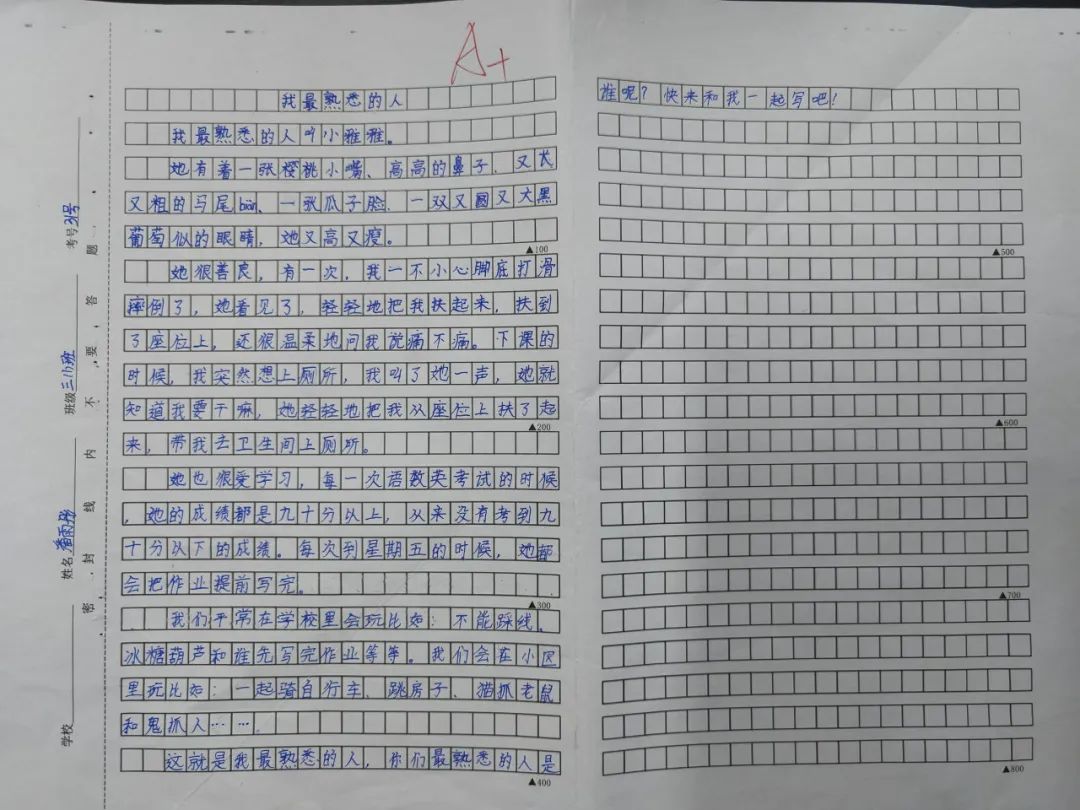 A+
我最熟悉的人
我最熟悉的人叫小雅雅。
她有着一张樱桃小嘴、高高的鼻子、又长
又粗的马尾biàn、一张瓜子脸、一双又圆又大黑
葡萄似的眼睛，她又高又瘦。
▲100
她很善良，有一次，我一不小心脚底打滑
摔倒了，她看见了，轻轻地把我扶起来，扶到
了座位上，还很温柔地问我说痛不痛。下课的
时候，我突然想上厕所，我叫了她一声，她就
知道我要干嘛，她轻轻地把我从座位上扶了起
▲200
来，带我去卫生间上厕所。
她也很爱学习，每一次语数英考试的时候
，她的成绩都是九十分以上，从来没有考到九
十分以下的成绩。每次到星期五的时候，她都
会把作业提前写完。
▲300
我们平常在学校里会玩比如：不能踩线、
冰糖葫芦和谁先写完作业等等。我们会在小区
里玩比如：一起骑自行车、跳房子、猫抓老鼠
和鬼抓人……
这就是我最熟悉的人，你们最熟悉的人是
▲400
谁呢？快来和我一起写吧！
▲500
▲600
▲700
▲800
学校
姓名 潘雨彤
班级 三(1)班
考号 31号
密 封 线 内 不 要 答 题